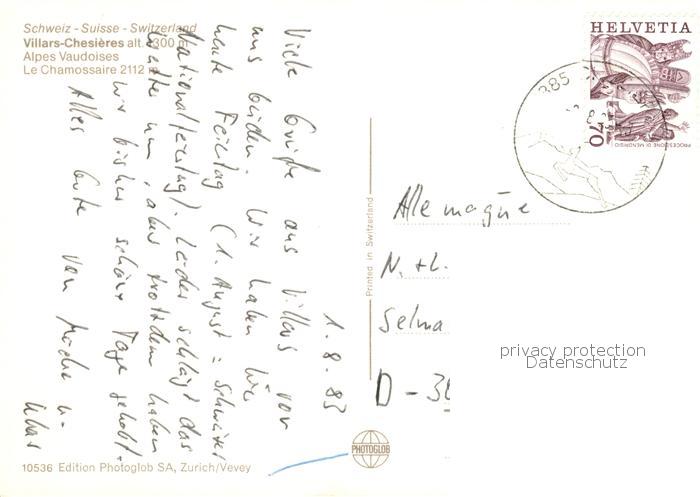 Schweiz - Suisse - Switzerland
Villars-Chesières alt. 1300 m
Alpes Vaudoises
Le Chamossaire 2112 m
1. 8. 83
Viele Grüße aus Villars von
uns beiden. Wir haben hier
heute Feiertag (1. August = Schweizer
Nationalfeiertag). Leider schlägt das
Wetter um, aber trotzdem haben
wir bisher schöne Tage gehabt.
Alles Gute von
Printed in Switzerland
10536 Edition Photoglob SA, Zurich/Vevey
PHOTOGLOB
HELVETIA
70
PROCESSIONE DI MENDRISIO
Allemagne
N. + L.
Selma
D - 3
privacy protection
Datenschutz